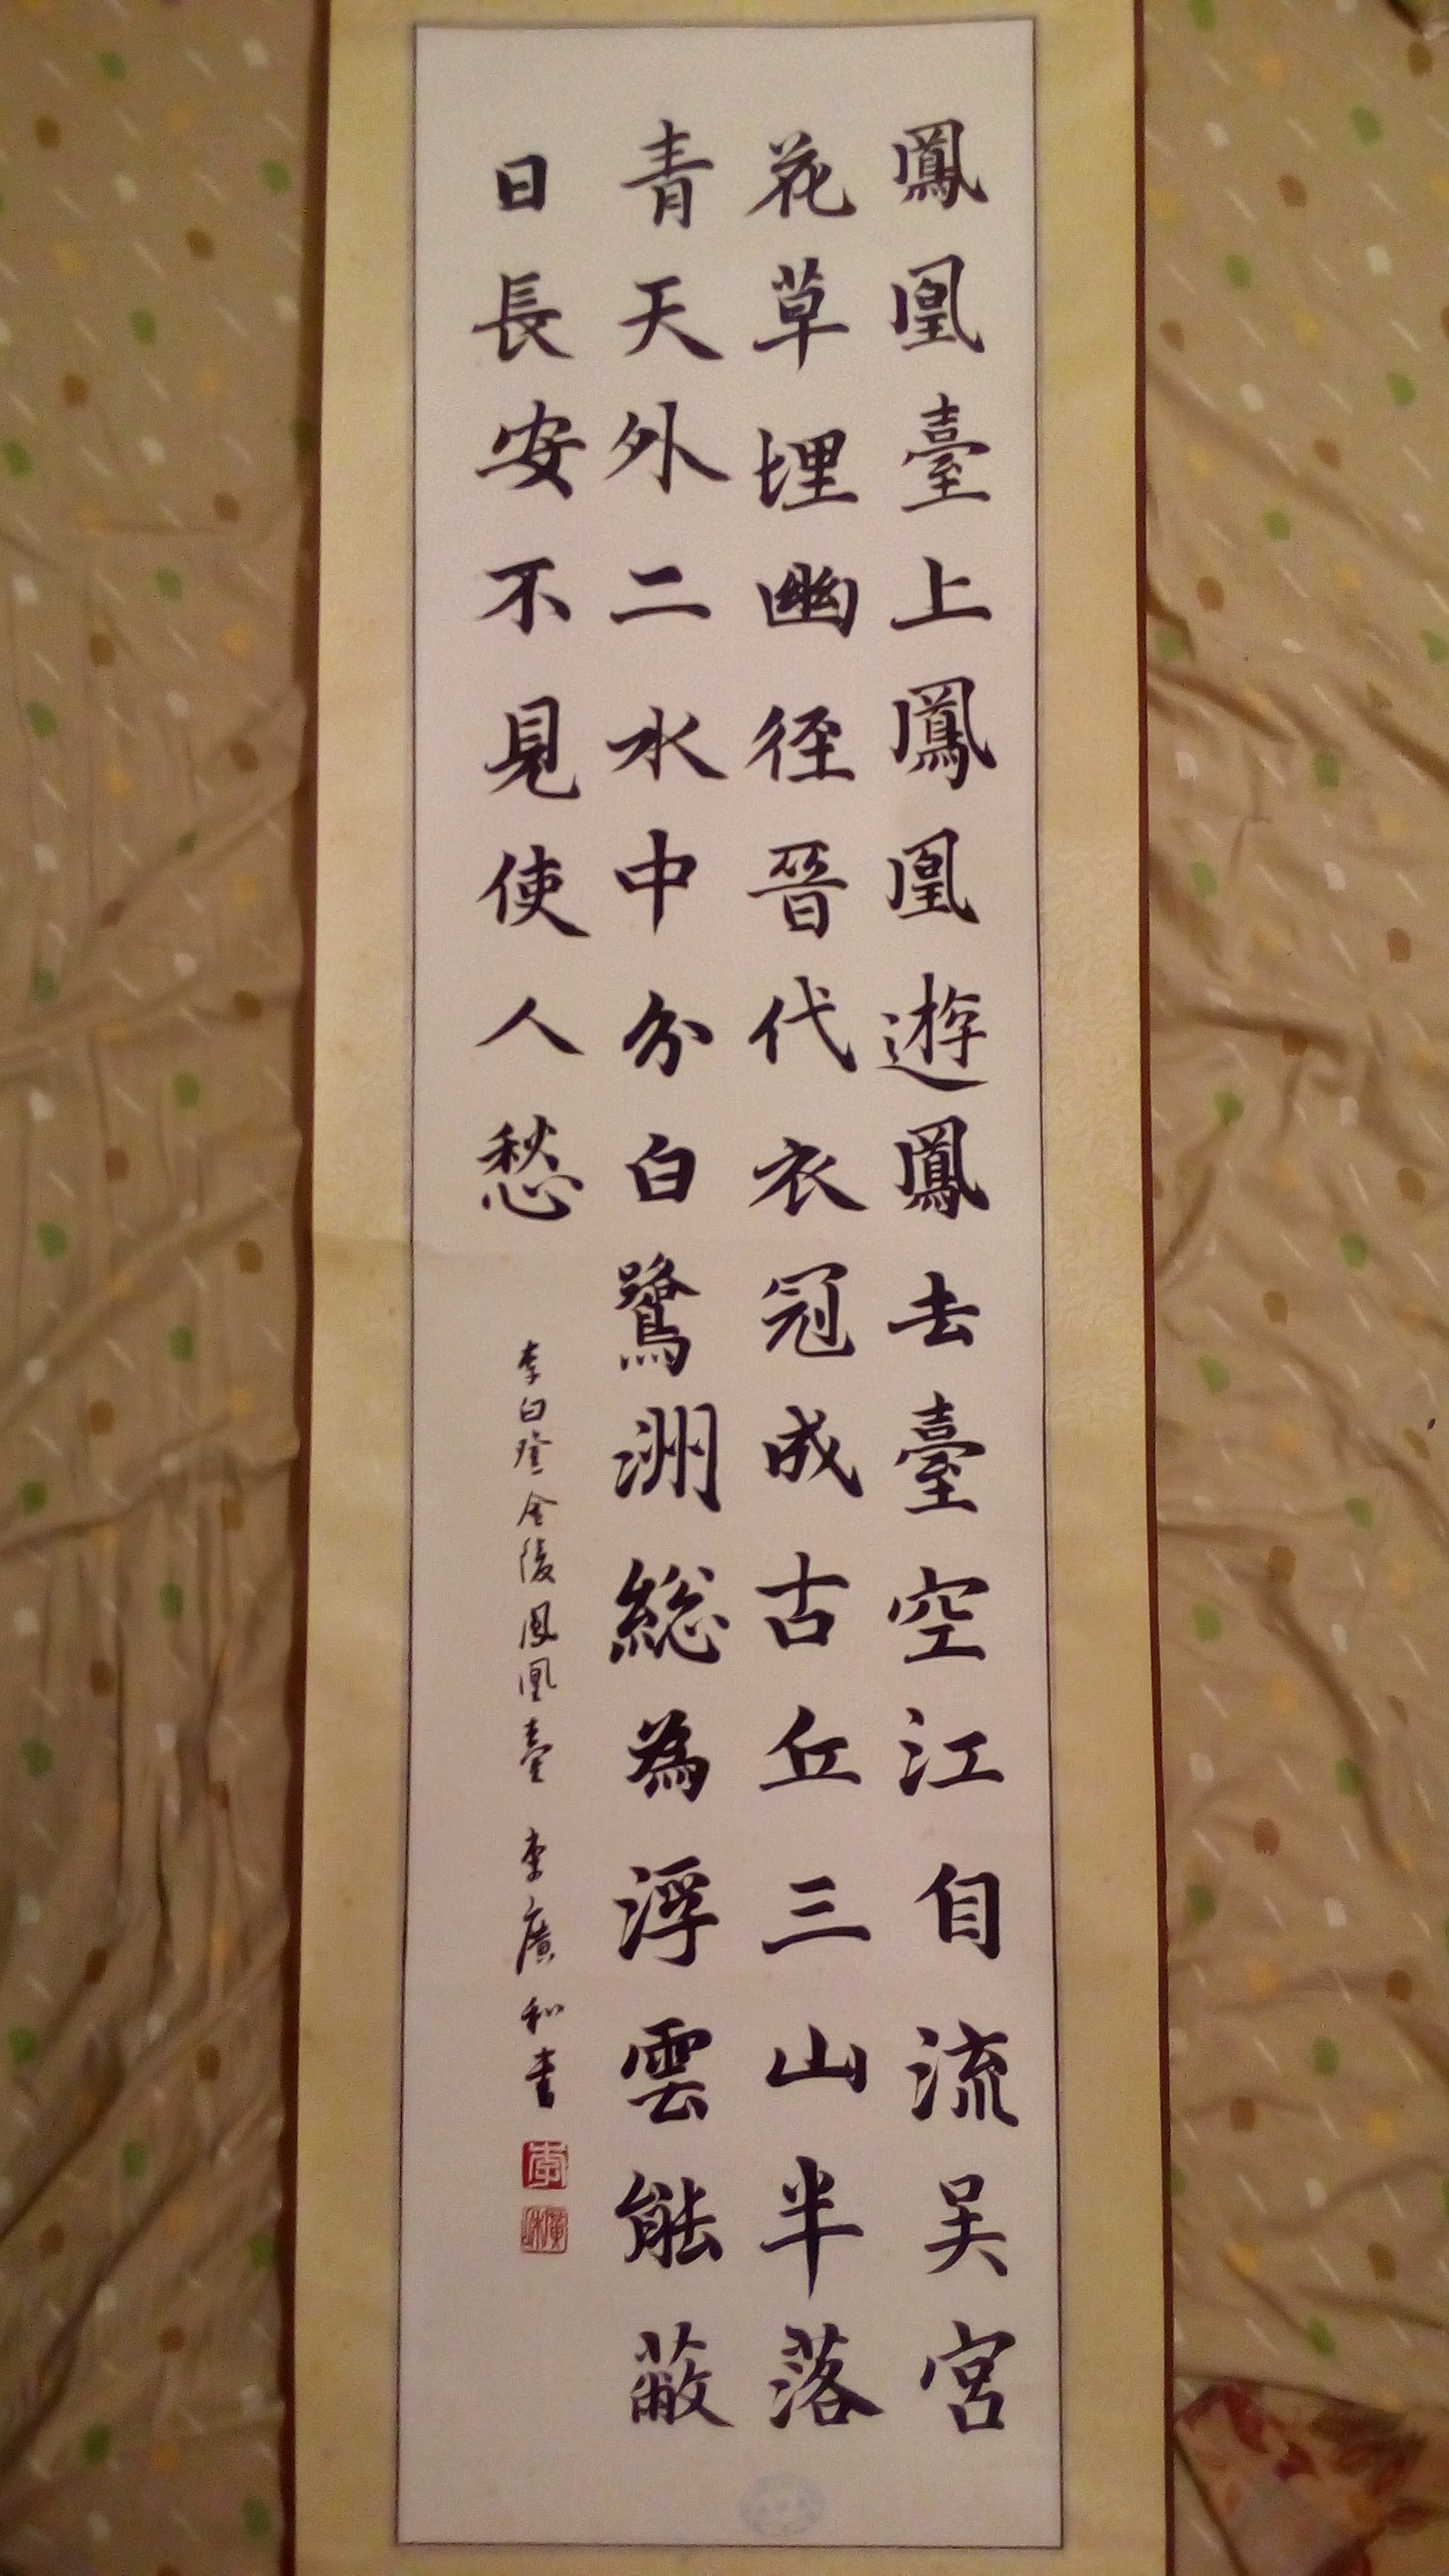 鳳凰臺上鳳凰遊鳳去臺空江自流吴宮
花草埋幽径晉代衣冠成古丘三山半落
青天外二水中分白鷺洲総為浮雲能蔽
日長安不見使人愁
李白登金陵鳳凰臺 李廣和書
李
廣和